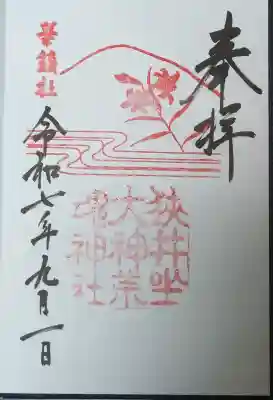 奉拝
狹井坐
大神荒
魂神社
華鎮社
令和七年九月一日